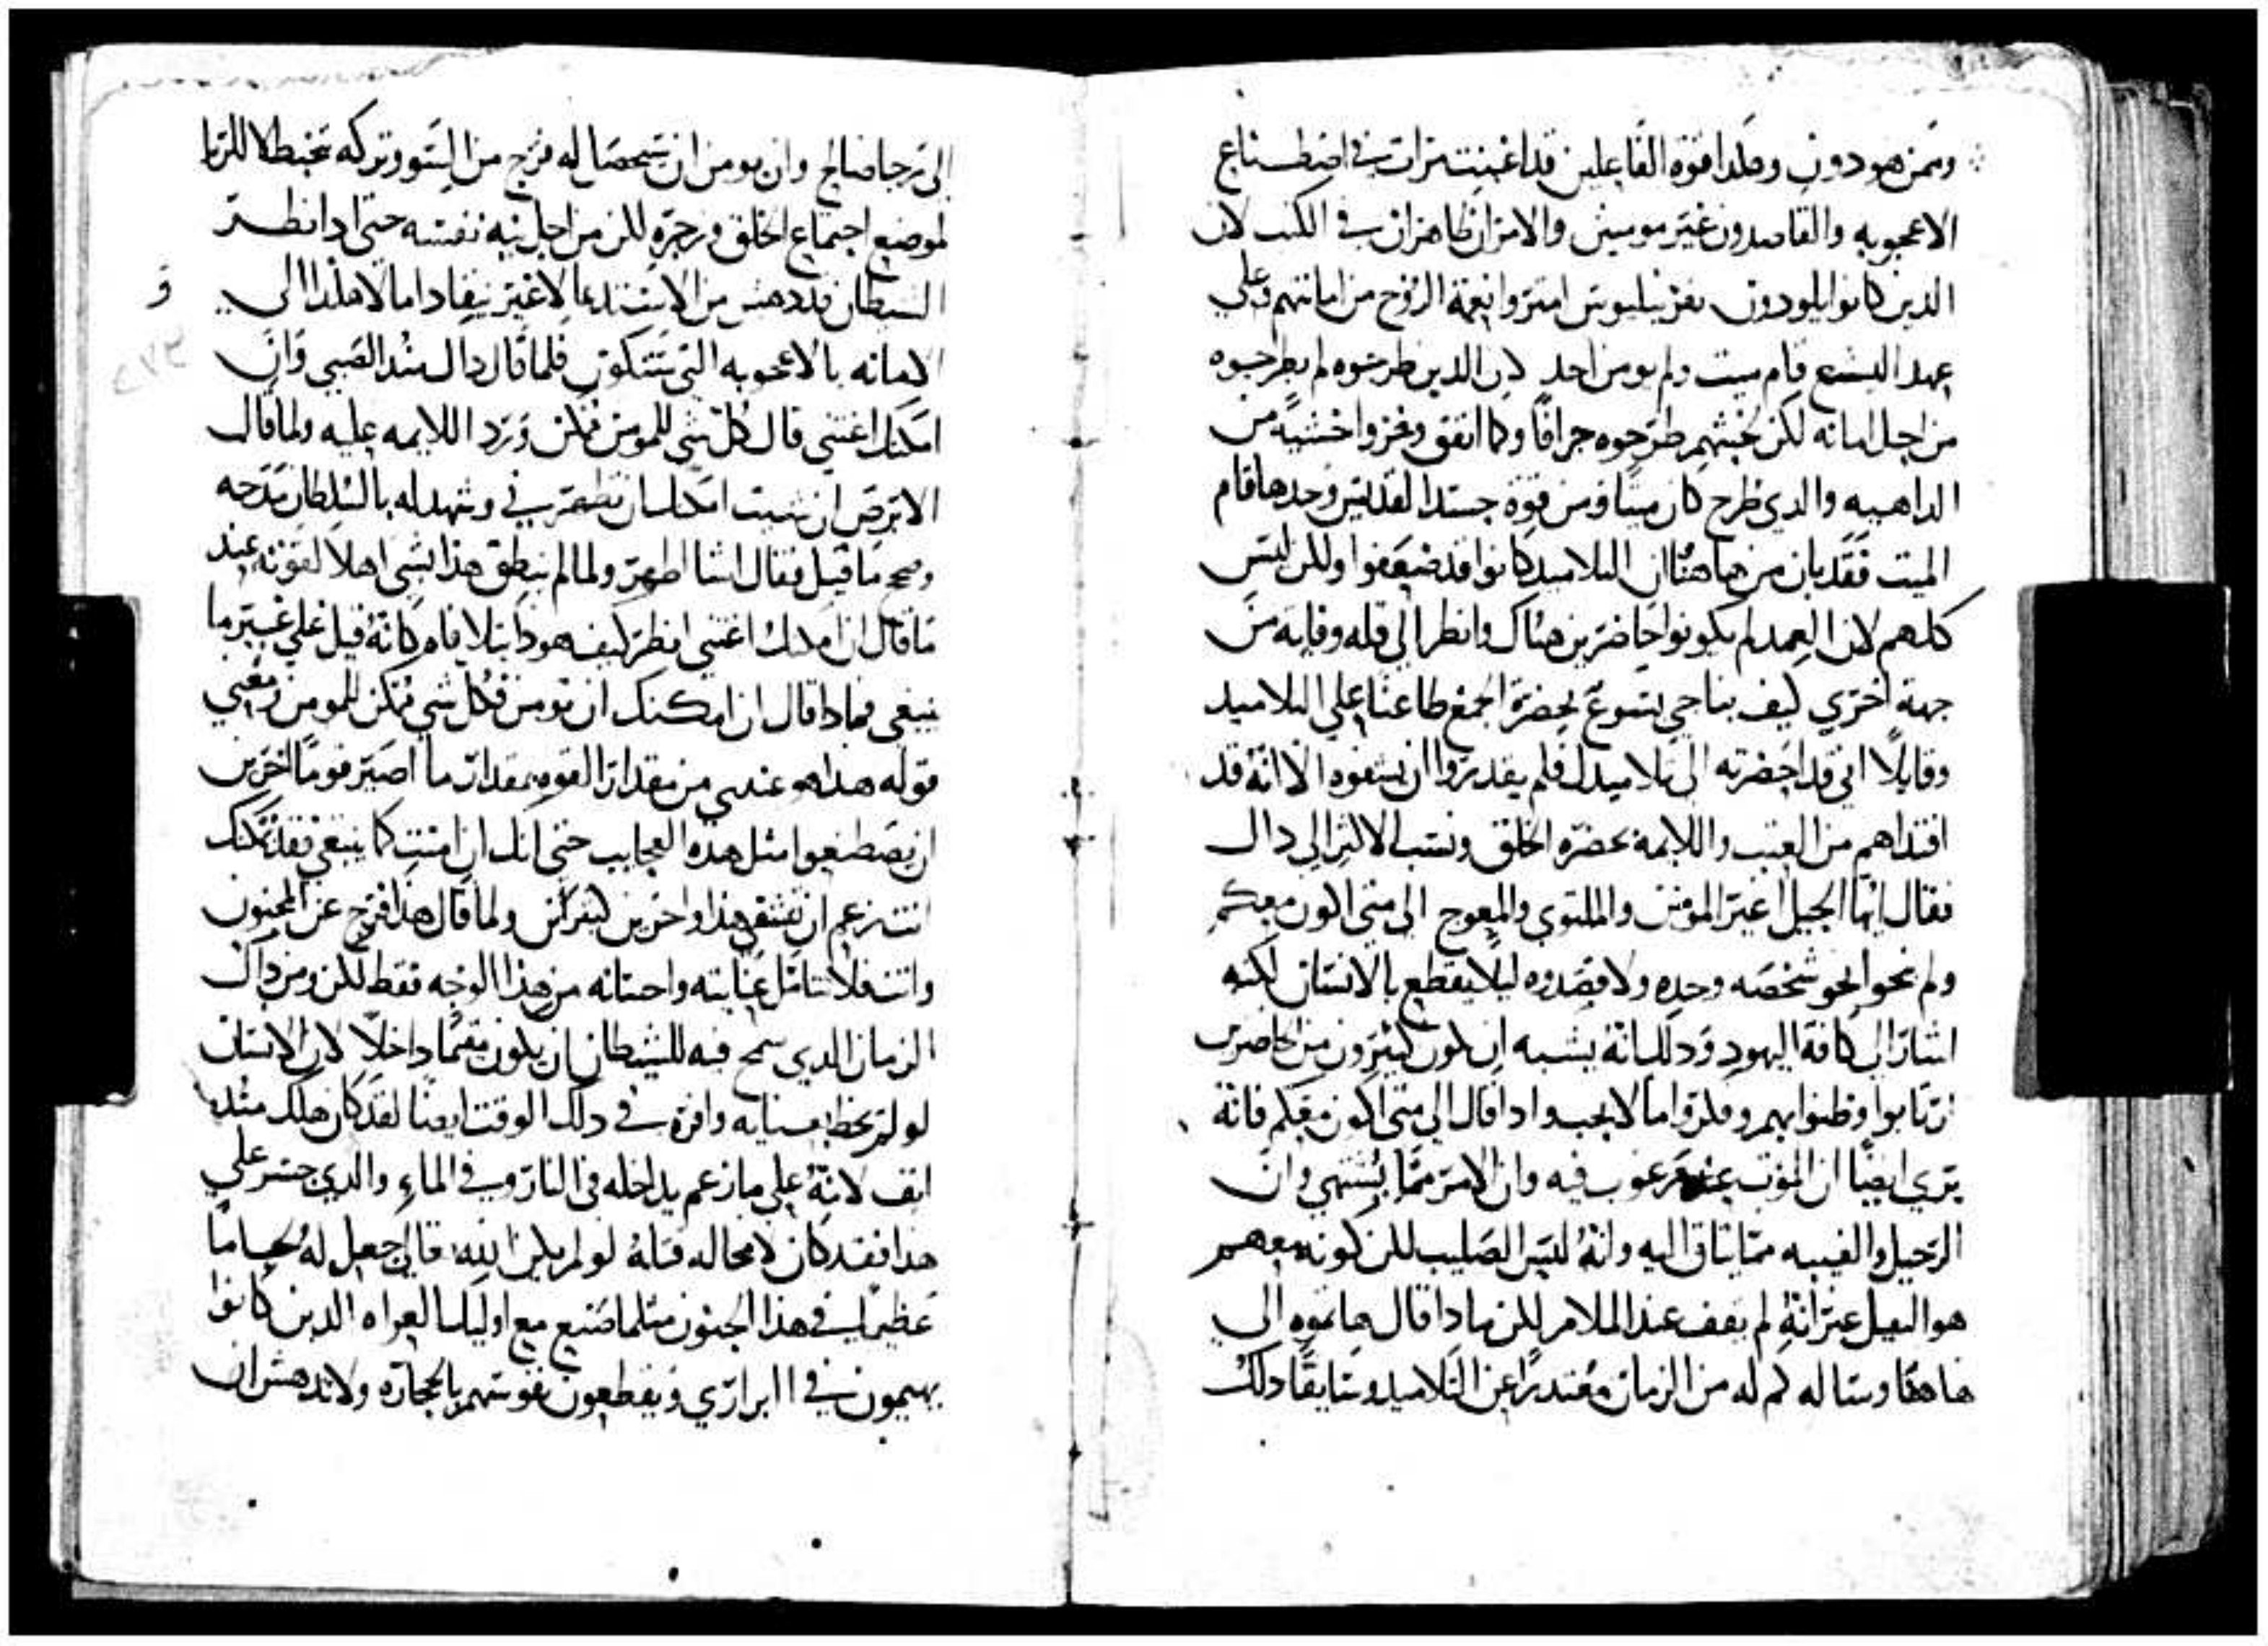 وممن هو دون وهكذا قوة الفاعلين قد اغنت مرات في اصطناع
الاعجوبه والقاصدون غير مومنين والامران ظاهران في الكتب لان
الدين كانوا يلودون بقرنيليوس امتروا نعمة الروح من امانتهم وعلى
عهد اليشع قام ميت ولم يومن احد لان الدين طرحوه لم يطرحوه
من اجل امانه لكن لخبثهم طرحوه جزافًا وكما اتفق وفروا خشيةً من
الداهيه والدي طرح كان ميتا ومن قوة جسد القديس وحدها قام
الميت فقد بان من هاهنا ان التلاميد كانوا قد ضعفوا ولكن ليس
كلهم لان العمد لم يكونوا حاضرين هناك وانظر الى قله وفايه من
جهة اخري كيف يناجي يسوع بحضرة الجمع طاعنا علي التلاميد
وقايلًا اني قد احضرته الى تلاميدك فلم يقدروا ان يشفوه الا انه قد
افتداهم من العتب واللايمة بحضرة الخلق ونسب الاكثر الي داك
فقال ايها الجيل الغير المومن والملتوي والمعوج الى متى اكون معكم
ولم نحوا نحو شخصه وحده ولا قصدوه ليلا يقطع بالانسان لكنه
اشار الى كافة اليهود ودلك انه يشبه ان يكون كثيرون من الحاضرين
ارتابوا وظنوا بهم وفكروا ما لا يجب وادا قال الي متى اكون معكم فانه
يري ايضًا ان الموت عنده مرعوب فيه وان الامر مما يشتهي وان
الرحيل والغيبه مما يتاق اليه وانه ليس الصليب لكن كونه معهم
هو الثقيل غير انه لم يقف عند الملام لكن مادا قال هاتوه الي
هاهنا وساله كم له من الزمان معتدرًا عن التلاميد وسايقًا دلك
الى رجا صالح وان يومن ان سيحصل له فرج من السو وتركه يتخبط لا للريا
لموضع اجتماع الخلق وزجره لكن من اجل ابيه نفسه حتى ادا نظر
الشيطان قد دهش من الاستدعا لا غير ينقاد اما لا هكدا الى
الامانه بالاعجوبه التي ستكون فلما قال داك مند الصبي وان
امكنك اغتني قال كل شي للمومن ممكن ورد اللايمه عليه ولما قال
الابرص ان شيت امكنك ان تطهرني وشهد له بالسلطان مدحه
وصحح ما قيل فقال اشا اطهر ولما لم ينطق هذا بشي اهلا لقوته عند
ما قال ان امكنك اغتني انظر كيف هودا يتلافاه كانه قيل علي غير ما
ينبغي فمادا قال ان امكنك ان تومن فكل شي ممكن للمومن ومعني
قوله هدا هو عندي من مقدار القوه بمقدار ما اصير قومًا اخرين
ان يصطنعوا مثل هذه العجايب حتى انك ان امنت كما ينبغي فقد يمكنك
انت زعم ان تشفي هذا واخرين كثيرين ولما قال هذا فرج عن المجنون
وانت فلا تتامل عنايته واحسانه من هذا الوجه فقط لكن ومن داك
الزمان الدي سمح فيه للشيطان ان يكون مقيمًا داخلًا لان الانسان
لو لم يحظ بعنايه وافره في دلك الوقت ايضًا لقد كان هلك مند
انف لانه علي ما زعم يداخله في النار وفي الماء والدي جسر علي
هدا فقد كان لا محاله قتله لو لم يكن الله تعالى جعل له لجامًا
عظيمًا في هذا الجنون مثلما صنع مع اوليك العراه الدين كانوا
يهيمون في البراري ويقطعون نفوسهم بالحجاره ولا تدهش ان